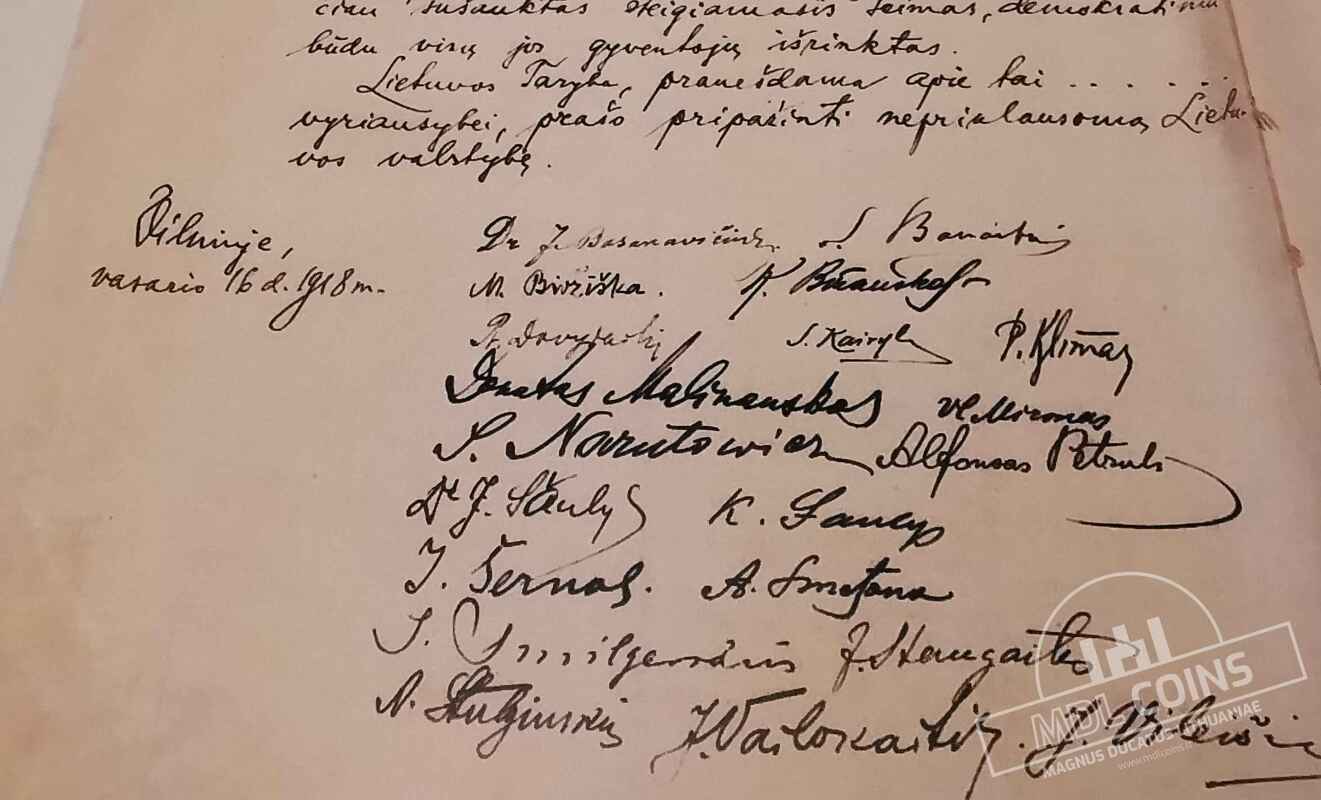 čiau sušauktas steigiamasis seimas, demokratiniu
būdu visų jos gyventojų išrinktas.
Lietuvos Taryba, pranešdama apie tai . . . . . .
vyriausybei, prašo pripažinti nepriklausomą Lietu-
vos valstybę.
Vilniuje,
vasario 16 d. 1918 m.
Dr J. Basanavičius. S. Banaitis
M. Biržiška. K. Bizauskas
Pr. Dovydaitis S. Kairys P. Klimas
Donatas Malinauskas Vl Mironas
S. Narutowicz Alfonsas Petrulis
Dr J. Šaulys K. Šaulys
J. Šernas. A. Smetona
J. Smilgevičius J. Staugaitis
A. Stulginskis J. Vailokaitis. J. Vileišis
MDL COINS
MAGNUS DUCATUS LITHUANIAE